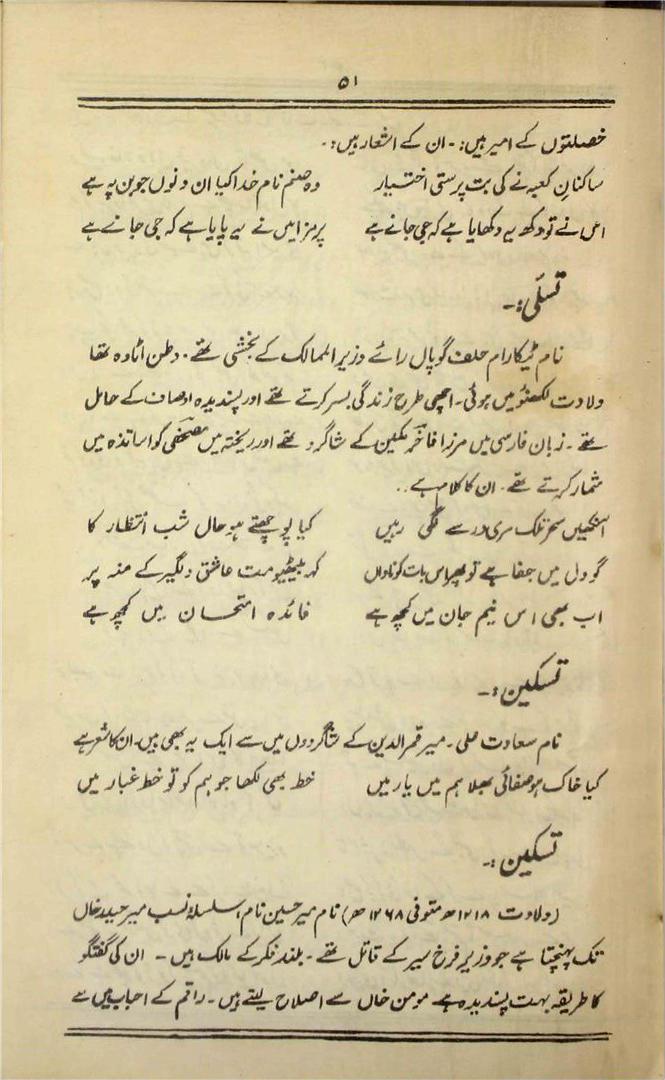 ۵۱
خصلتوں کے امیر ہیں:۔ ان کے اشعار ہیں:۔
ساکنانِ کعبہ نے کی بت پرستی اختیار وہ صنم نام خدا کیا ان دنوں جوبن پہ ہے
اس نے تو دکھ یہ دکھایا ہے کہ جی جانے ہے پر مزا میں نے یہ پایا ہے کہ جی جانے ہے
تسلّی:۔
نام ٹیکا رام خلف گوپال رائے وزیر الممالک کے بخشی تھے۔ وطن اٹاوہ تھا
ولادت لکھنؤ میں ہوئی۔ اچھی طرح زندگی بسر کرتے تھے اور پسندیدہ اوصاف کے حامل
تھے۔ زبان فارسی میں مرزا فاخر مکین کے شاگرد تھے اور ریختہ میں مصحفی کو اساتذہ میں
شمار کرتے تھے۔ ان کا کلام ہے۔۔
آنکھیں سحر تلک مری در سے لگی رہیں کیا پوچھتے ہو حال شب انتظار کا
گو دل میں خفا ہے تو پھر اس بات کو ناداں کہہ بیٹھیو مت عاشق دلگیر کے منہ پر
اب بھی اس نیم جان میں کچھ ہے فائدہ امتحان میں کچھ ہے
تسکین:۔
نام سعادت علی۔ میر قمر الدین کے شاگردوں میں سے ایک یہ بھی ہیں۔ ان کا شعر ہے
کیا خاک ہو صفائی بھلا ہم میں یار میں خط بھی لکھا جو ہم کو تو خط غبار میں
تسکین:۔
(ولادت ۱۲۱۸ھ متوفی ۱۲۶۸ھ) نام میر حسین نام، سلسلۂ نسب میر حیدر خاں
تک پہنچتا ہے جو وزیر فرخ سیر کے قاتل تھے۔ بلند فکر کے مالک ہیں۔ ان کی گفتگو
کا طریقہ بہت پسندیدہ ہے۔ مومن خاں سے اصلاح لیتے ہیں۔ راقم کے احباب میں سے